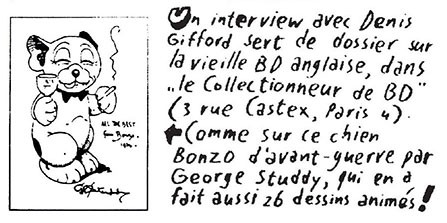 Un interview avec Denis
Gifford sert de dossier sur
la vieille BD anglaise, dans
„le Collectionneur de BD"
(3 rue Castex, Paris 4).
Comme sur ce chien
Bonzo d'avant-guerre par
George Studdy, qui en a
fait aussi 26 dessins animés!
All THE BEST
from Bonzo.
GEStuddy